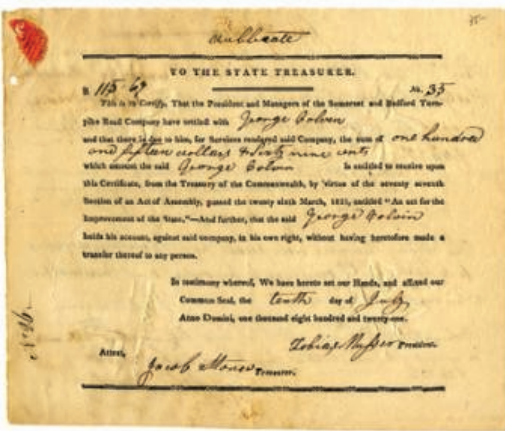 35-
TO THE STATE TREASURER.
$ 115 69 No. 35
This is to Certify, That the President and Managers of the Somerset and Bedford Turn-
pike Road Company have settled with George Colvin
and that there is due to him, for Services rendered said Company, the sum of one hundred
and fifteen dollars sixty nine cents
which amount the said George Colvin Is entitled to receive upon
this Certificate, from the Treasury of the Commonwealth, by virtue of the seventy seventh
Section of an Act of Assembly, passed the twenty sixth March, 1821, entitled "An act for the
Improvement of the State,"—And further, that the said George Colvin
holds his account, against said company, in his own right, without having heretofore made a
transfer thereof to any person.
In testimony whereof, We have hereto set our Hands, and affixed our
Common Seal, the tenth day of July
Anno Domini, one thousand eight hundred and twenty-one.
Tobias Musser President.
Attest,
Jacob Treasurer.